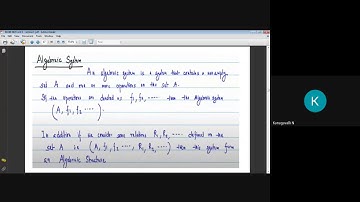 Algebraic System
An algebraic system is a system that contains a non-empty
set A and one or more operations on the set A.
If the operations are denoted as f1, f2, ..... then the Algebraic system
(A, f1, f2 ....)
In addition if we consider some relations R1, R2, ..... defined on the
set A ie (A, f1, f2 ...., R1, R2, .....) then this system form
an Algebraic Structure.
K
Kanagavalli N